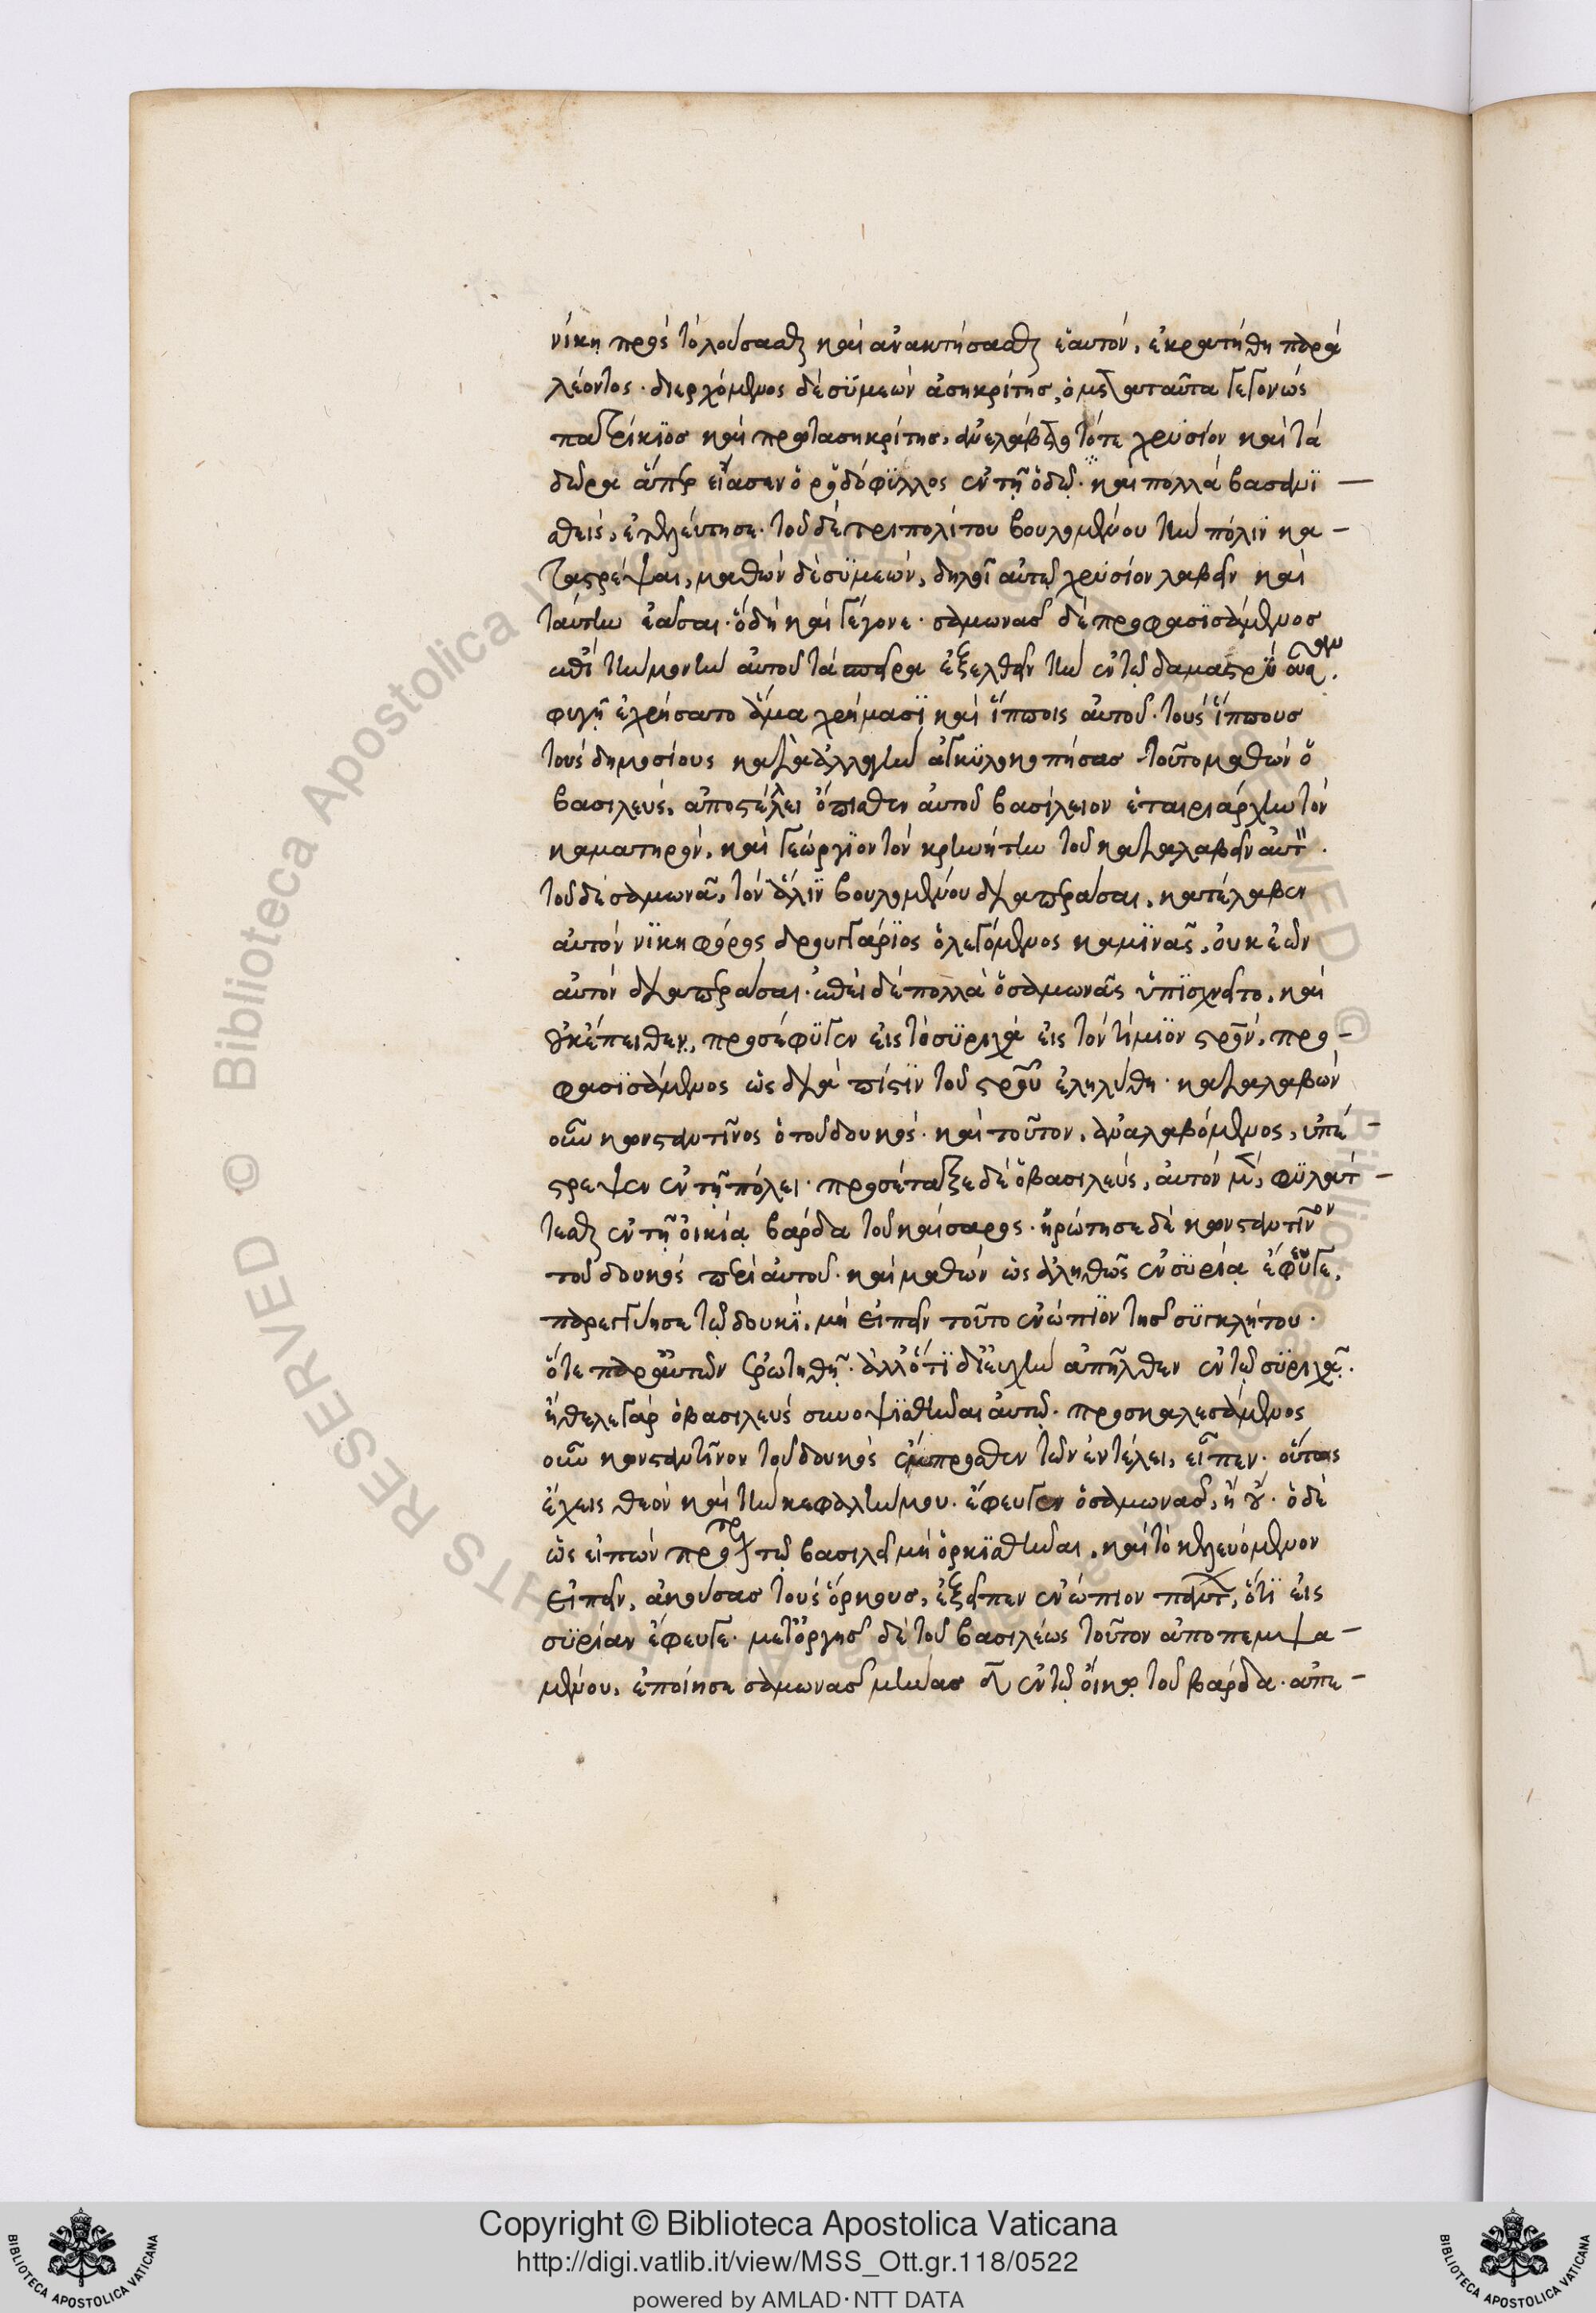 νίκη πρὸς τὸ λούσασθαι καὶ ἀνακτήσασθαι ἑαυτόν, ἐκρατήθη παρὰ
λέοντος. διερχόμενος δὲ συμεὼν ἀσηκρίτης, ὁ μετὰ ταῦτα γεγονὼς
πατρίκιος καὶ πρωτασηκρίτης, ἀνελάβετο τότε χρυσίον καὶ τὰ
δῶρα ἅπερ εἴασεν ὁ ῥοδόφυλλος ἐν τῇ ὁδῷ. καὶ πολλὰ βασανι
σθεὶς, ἐτελεύτησε. τοῦ δὲ τριπολίτου βουλομένου τὴν πόλιν κα
ταστρέψαι, μαθὼν δὲ συμεὼν, δηλοῖ αὐτῷ χρυσίον λαβεῖν καὶ
ταύτην ἐᾶσαι. ὃ δὴ καὶ γέγονε. σαμωνᾶς δὲ προφασισάμενος
ἐπὶ τὴν μονὴν αὐτοῦ τὰ σπεῖρα ἐξελθεῖν τὴν ἐν τῷ δαμαστρύϊ οὖσαν,
φυγῇ ἐχρήσατο ἅμα χρήμασι καὶ ἵπποις αὐτοῦ. τοὺς ἵππους
τοὺς δημοσίους κατὰ ἀλλαγὴν ἀγκυλοκοπήσας. τοῦτο μαθὼν ὁ
βασιλεὺς, ἀποστέλλει ὄπισθεν αὐτοῦ βασίλειον ἑταιριάρχην τὸν
καματηρὸν, καὶ γεώργιον τὸν κρινήτην τοῦ καταλαβεῖν αὐτόν.
τοῦ δὲ σαμωνᾶ, τὸν ἅλιν βουλομένου διαπερᾶσαι, κατέλαβεν
αὐτὸν νικηφόρος δρουγγάριος ὁ λεγόμενος καμινᾶς, οὐκ ἐῶν
αὐτὸν διαπερᾶσαι. ἐπεὶ δὲ πολλὰ ὁ σαμωνᾶς ὑπισχνεῖτο, καὶ
οὐκ ἔπειθεν, προσέφυγεν εἰς τὸ συριχὰ εἰς τὸν τίμιον σταυρόν, προ
φασισάμενος ὡς διὰ πίστιν τοῦ σταυροῦ ἐληλύθη. καταλαβὼν
οὖν κωνσταντῖνος ὁ τοῦ δουκὸς. καὶ τοῦτον, ἀναλαβόμενος, ὑπέ
στρεψεν ἐν τῇ πόλει. προσέταξε δὲ ὁ βασιλεὺς, αὐτὸν μὲν, φυλάτ
τεσθαι ἐν τῇ οἰκίᾳ βάρδα τοῦ καίσαρος. ἠρώτησε δὲ κωνσταντῖνον
τοῦ δουκὸς περὶ αὐτοῦ. καὶ μαθὼν ὡς ἀληθῶς ἐν συρίᾳ ἔφευγε,
παρεγγύησε τῷ δουκὶ, μὴ εἰπεῖν τοῦτο ἐνώπιον τῆς συγκλήτου.
ὅτε παρ' αὐτῶν ἐρωτηθῇ. ἀλλ' ὅτι δι' εὐχὴν ἀπῆλθεν ἐν τῷ συριχᾷ.
ἤθελε γὰρ ὁ βασιλεὺς συνοψισθῆναι αὐτῷ. προσκαλεσάμενος
οὖν κωνσταντῖνον τοῦ δουκὸς ἔμπροσθεν τῶν ἐν τέλει, εἶπεν. οὕτως
ἔχεις θεὸν καὶ τὴν κεφαλήν μου. ἔφευγεν ὁ σαμωνᾶς, ἢ οὔ. ὁ δὲ
ὡς εἰπὼν πρότερον τῷ βασιλεῖ μὴ ὁρκισθῆναι, καὶ τὸ κελευόμενον
εἰπεῖν, ἀκούσας τοὺς ὅρκους, ἐξεῖπεν ἐνώπιον πάντων, ὅτι εἰς
συρίαν ἔφευγε. μετ' ὀργῆς δὲ τοῦ βασιλέως τοῦτον ἀποπεμψα
μένου, ἐποίησε σαμωνᾶς μῆνας δ ἐν τῷ οἴκῳ τοῦ βάρδα. ἀπε
Copyright © Biblioteca Apostolica Vaticana
http://digi.vatlib.it/view/MSS_Ott.gr.118/0522
powered by AMLAD·NTT DATA